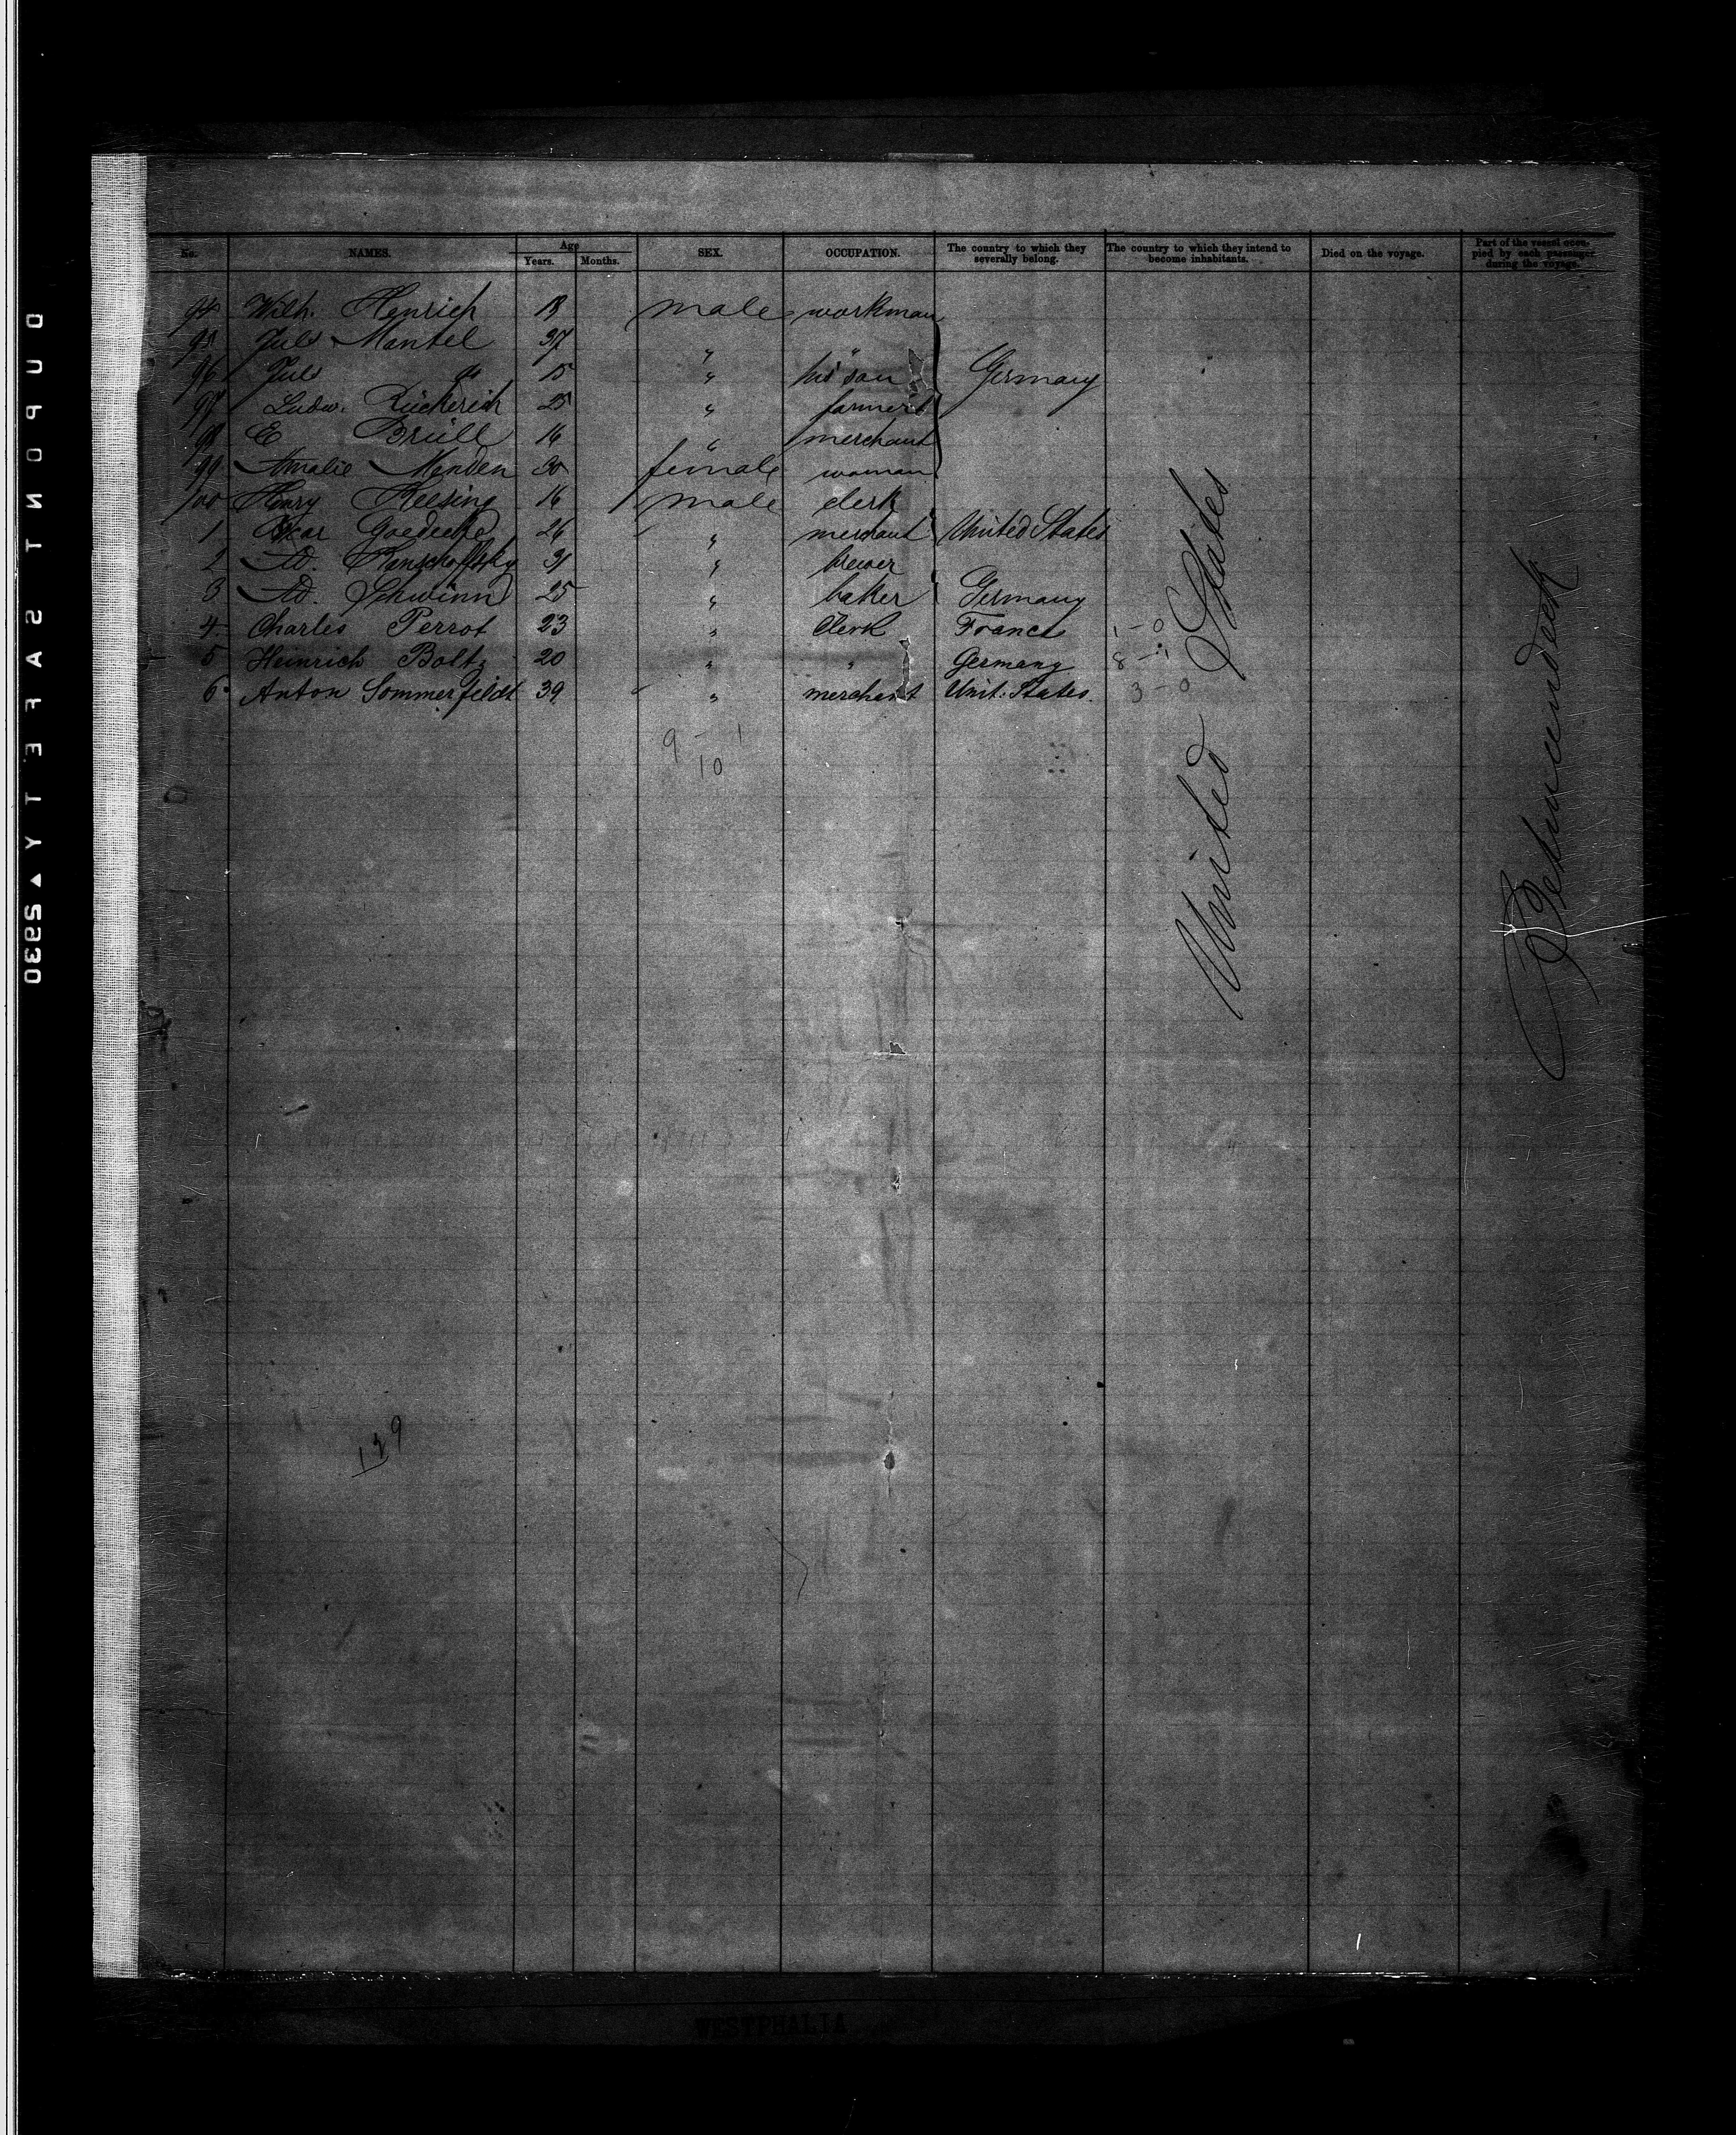 No. NAMES. Age Years. Months. SEX. OCCUPATION. The country to which they severally belong. The country to which they intend to become inhabitants. Died on the voyage. Part of the vessel occupied by each passenger during the voyage.
94 Wilh. Henrich 18 male workman
95 Juls Mantel 37 " "
96 Juls do 15 " his son Germany
97 Ludw. Rückerich 25 " farmer
98 E Brüll 16 " merchant
99 Amalie Menden 30 female woman
100 Henry Keesing 16 male clerk
1 Oscar Goedecke 26 " merchant United States
2 Ad. 31 " brewer
3 Ad. Schwinn 25 " baker Germany
4. Charles Perrot 23 " Clerk France 1-0
5 Heinrich Boltz 20 " " Germany 8-1
6. Anton Sommerfeldt 39 " merchant Unit: States. 3-0
9 - 1
10
United States
Zwischendeck
139
WESTPHALIA
DUPONT SAFETY ▲ S930